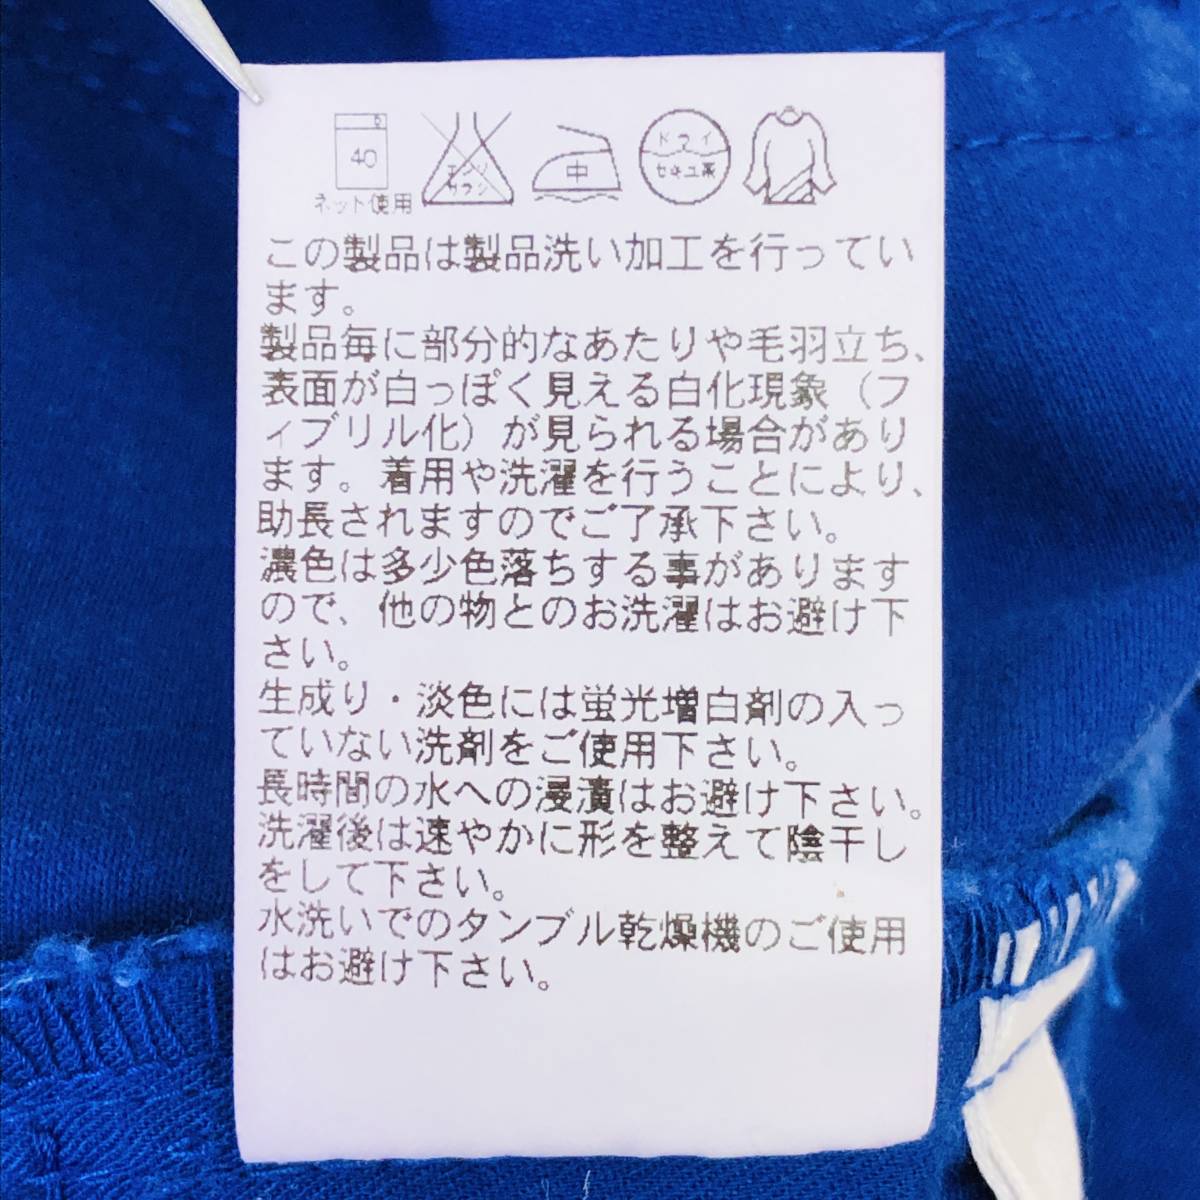 40
ネット使用
エンソ
サラシ
中
ドライ
セキユ系
この製品は製品洗い加工を行ってい
ます。
製品毎に部分的なあたりや毛羽立ち、
表面が白っぽく見える白化現象（フ
ィブリル化）が見られる場合があり
ます。着用や洗濯を行うことにより、
助長されますのでご了承下さい。
濃色は多少色落ちする事があります
ので、他の物とのお洗濯はお避け下
さい。
生成り・淡色には蛍光増白剤の入っ
ていない洗剤をご使用下さい。
長時間の水への浸漬はお避け下さい。
洗濯後は速やかに形を整えて陰干し
をして下さい。
水洗いでのタンブル乾燥機のご使用
はお避け下さい。